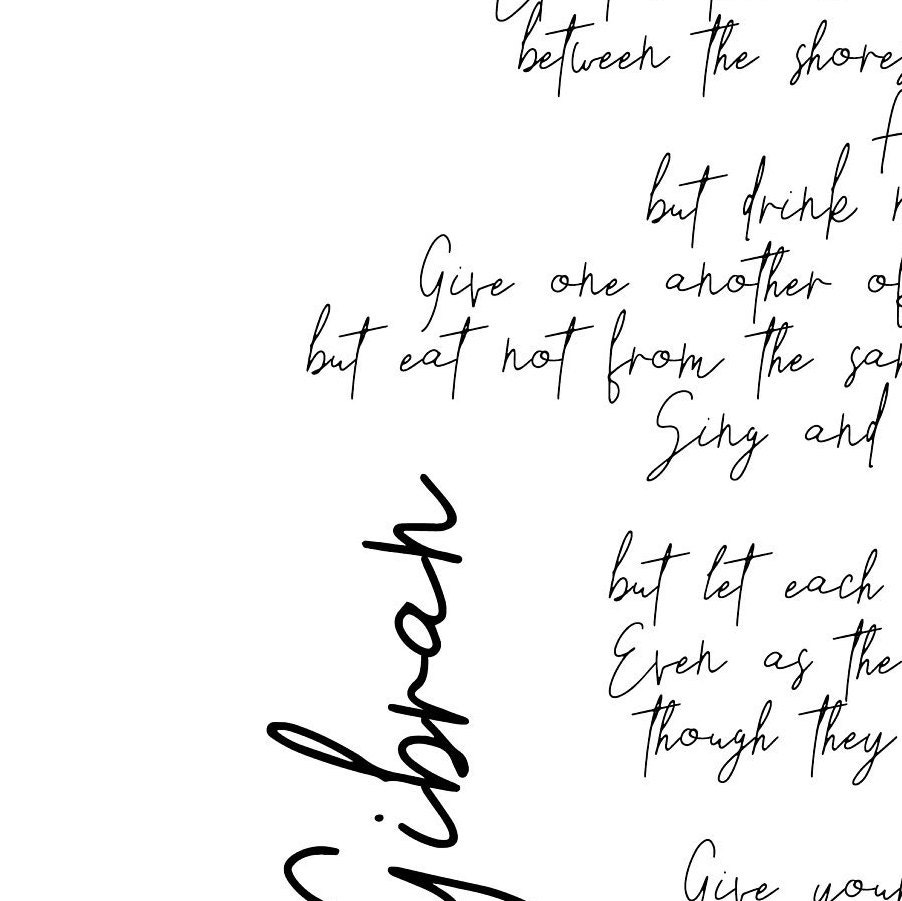 between the shore
but drink
Give one another of
but eat not from the
Sing and
but let each
Even as the
though they
Give your
Gibran